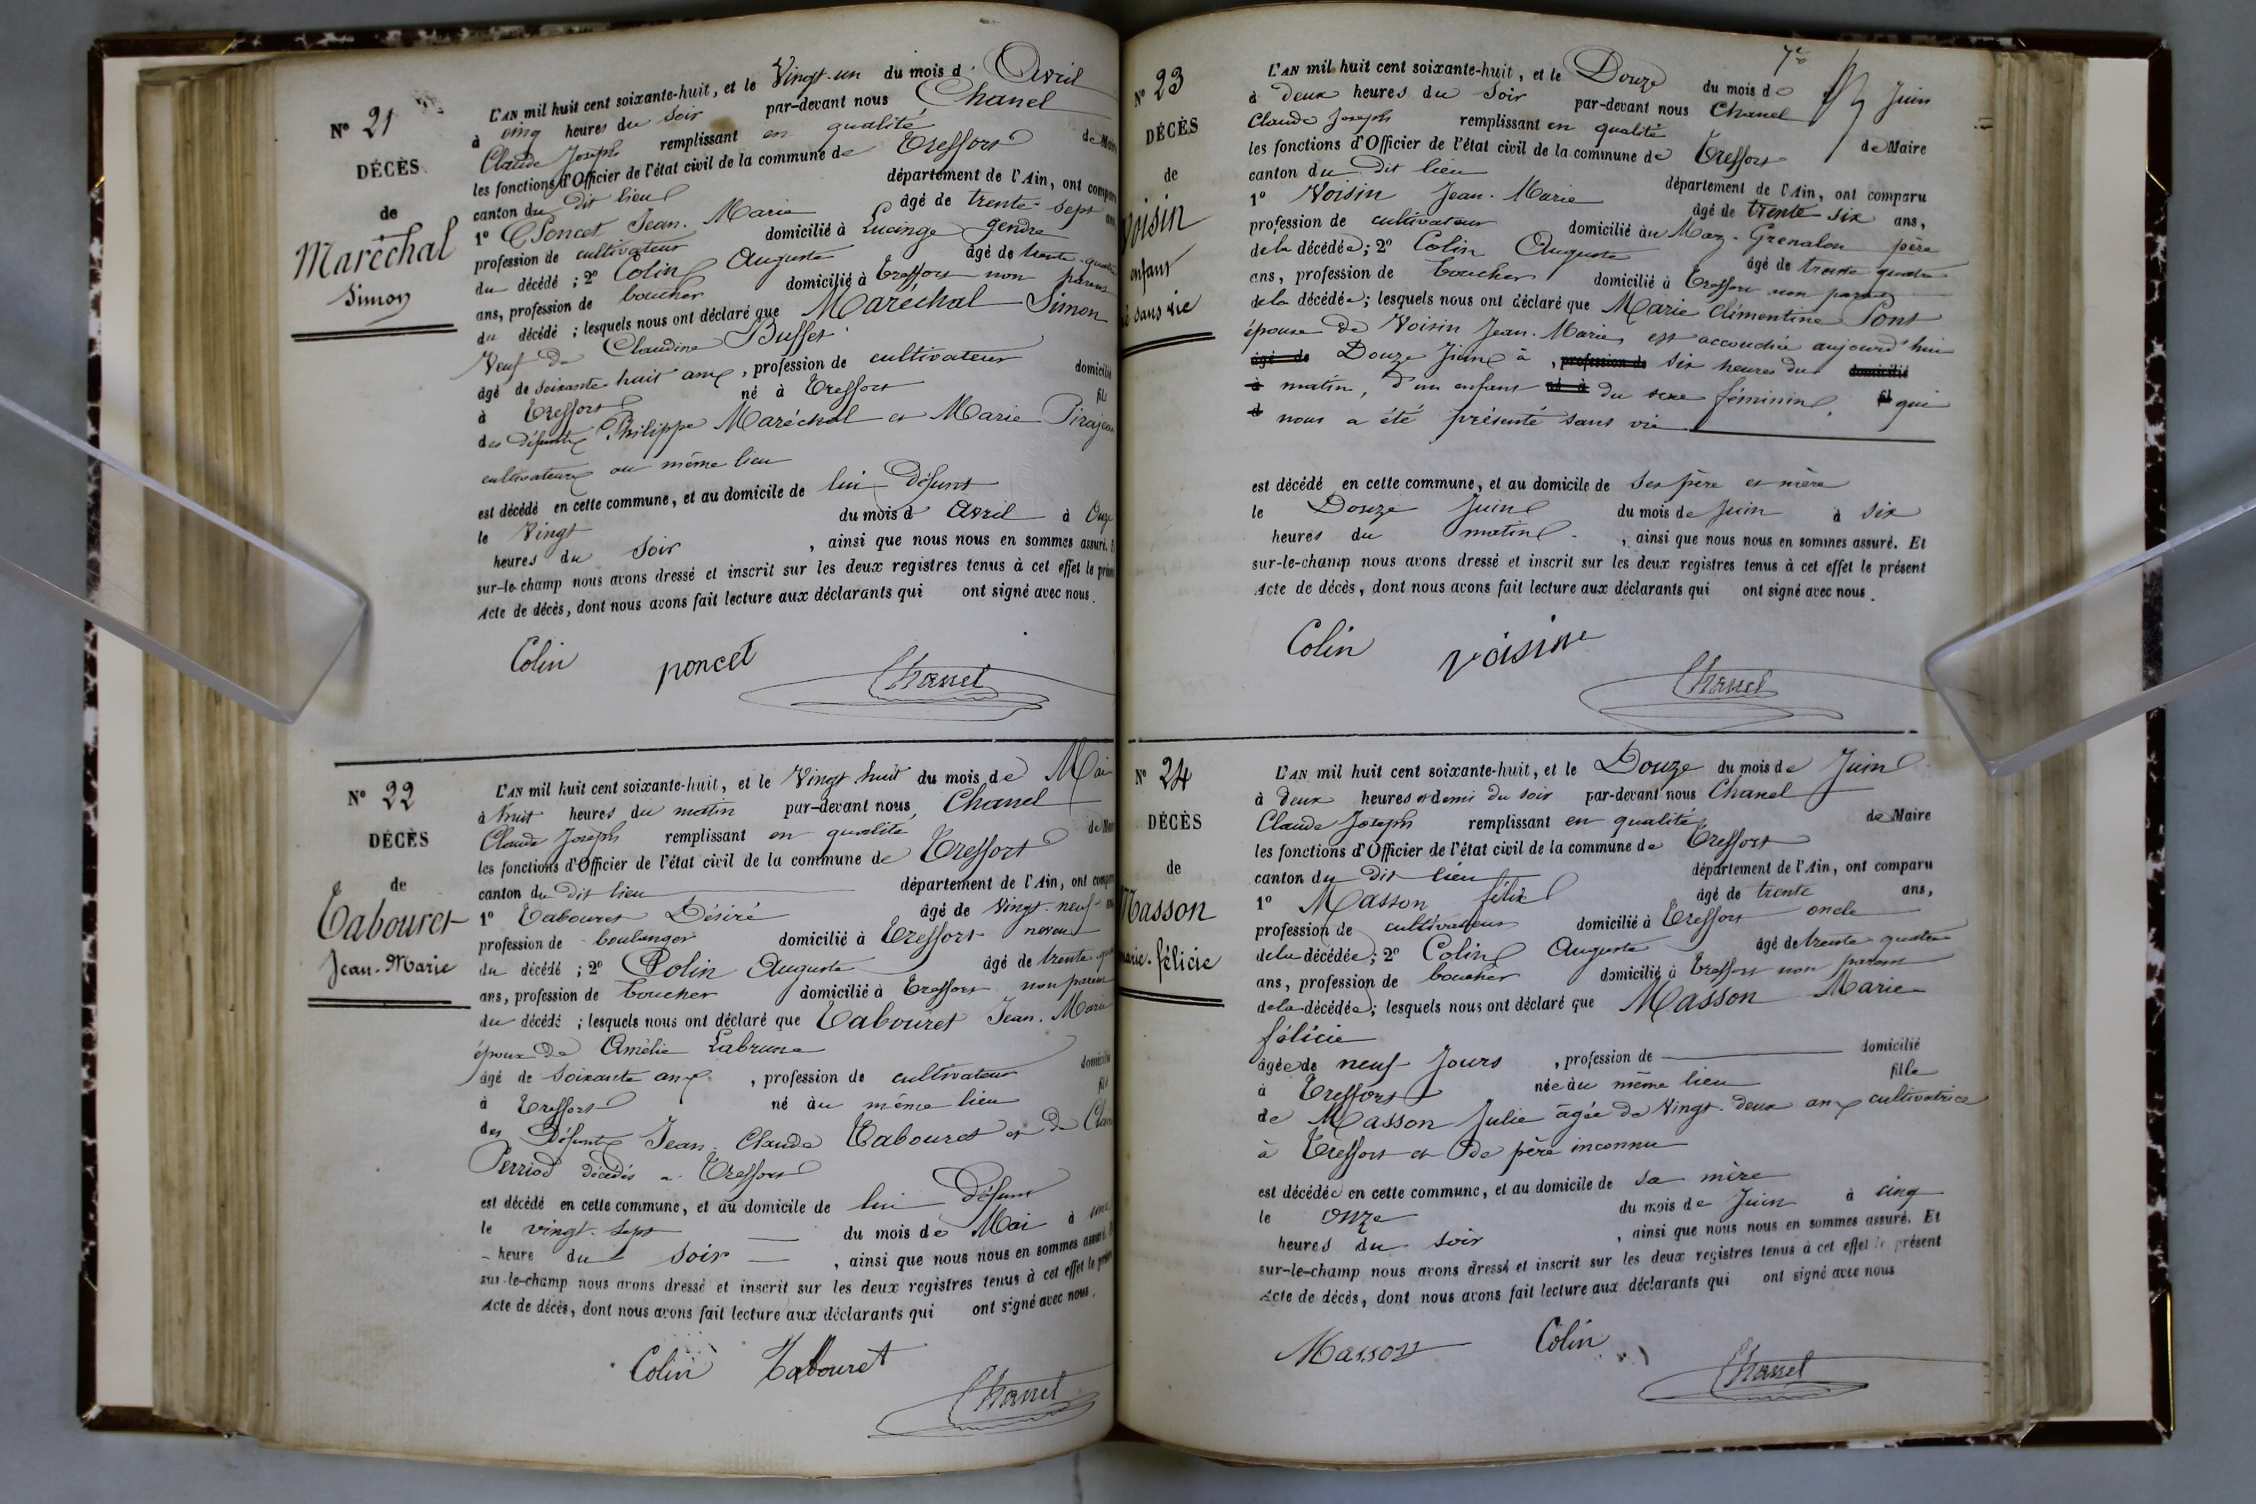 N° 21
DÉCÈS
de
Maréchal
Simon
L'AN mil huit cent soixante-huit, et le Vingt-un du mois d' Avril
à cinq heures du soir par-devant nous Chanel
Claude Joseph remplissant en qualité de Maire
les fonctions d'Officier de l'état civil de la commune de Treffort
canton du dit lieu département de l'Ain, ont comparu
1° Poncet Jean-Marie âgé de trente-sept ans
profession de cultivateur domicilié à Lucinge gendre
du décédé ; 2° Colin Auguste âgé de trente-quatre
ans, profession de boucher domicilié à Treffort non parent
du décédé ; lesquels nous ont déclaré que Maréchal Simon
Veuf de Claudine Buffet
âgé de soixante-huit ans, profession de cultivateur domicilié
à Treffort né à Treffort fils
des défunts Philippe Maréchal et Marie Pirajean
cultivateurs au même lieu
est décédé en cette commune, et au domicile de lui Défunt
le Vingt du mois d' Avril à Onze
heures du soir, ainsi que nous nous en sommes assuré. Et
sur-le-champ nous avons dressé et inscrit sur les deux registres tenus à cet effet le présent
Acte de décès, dont nous avons fait lecture aux déclarants qui ont signé avec nous.
Colin poncet Chanel
N° 22
DÉCÈS
de
Tabouret
Jean-Marie
L'AN mil huit cent soixante-huit, et le Vingt huit du mois de Mai
à huit heures du matin par-devant nous, Chanel
Claude Joseph remplissant en qualité de Maire
les fonctions d'Officier de l'état civil de la commune de Treffort
canton du dit lieu département de l'Ain, ont comparu
1° Tabouret Désiré âgé de vingt-neuf ans
profession de boulanger domicilié à Treffort neveu
du décédé ; 2° Colin Auguste âgé de trente-quatre
ans, profession de boucher domicilié à Treffort non parent
du décédé ; lesquels nous ont déclaré que Tabouret Jean-Marie
époux de Amélie Labrune
âgé de soixante ans, profession de cultivateur domicilié
à Treffort né au même lieu fils
des Défunts Jean-Claude Tabouret et de
Perriod décédés à Treffort
est décédé en cette commune, et au domicile de lui Défunt
le vingt-sept du mois de Mai à une
heure du soir, ainsi que nous nous en sommes assuré. Et
sur-le-champ nous avons dressé et inscrit sur les deux registres tenus à cet effet le présent
Acte de décès, dont nous avons fait lecture aux déclarants qui ont signé avec nous.
Colin Tabouret Chanel
N° 23
DÉCÈS
de
Voisin
enfant
né sans vie
L'AN mil huit cent soixante-huit, et le Douze du mois de Juin
à deux heures du soir par-devant nous Chanel
Claude Joseph remplissant en qualité de Maire
les fonctions d'Officier de l'état civil de la commune de Treffort
canton du Dit lieu département de l'Ain, ont comparu
1° Voisin Jean-Marie âgé de trente-six ans,
profession de cultivateur domicilié au Maz-Grenalou père
de la décédée ; 2° Colin Auguste âgé de trente quatre
ans, profession de boucher domicilié à Treffort non parent
de la décédée ; lesquels nous ont déclaré que Marie Clémentine Pont
épouse de Voisin Jean-Marie, est accouchée aujourd'hui
âgé de Douze Juin à, profession de six heures du domicilié
à matin, d'un enfant né à du sexe féminin, fil qui
d nous a été présenté sans vie
est décédé en cette commune, et au domicile de ses père et mère
le Douze Juin du mois de Juin à six
heures du matin, ainsi que nous nous en sommes assuré. Et
sur-le-champ nous avons dressé et inscrit sur les deux registres tenus à cet effet le présent
Acte de décès, dont nous avons fait lecture aux déclarants qui ont signé avec nous.
Colin voisin Chanel
N° 24
DÉCÈS
de
Masson
Marie-félicie
L'AN mil huit cent soixante-huit, et le Douze du mois de Juin
à deux heures et demi du soir par-devant nous Chanel
Claude Joseph remplissant en qualité de Maire
les fonctions d'Officier de l'état civil de la commune de Treffort
canton du Dit lieu département de l'Ain, ont comparu
1° Masson félix âgé de trente ans,
profession de cultivateur domicilié à Treffort oncle
de la décédée ; 2° Colin Auguste âgé de trente quatre
ans, profession de boucher domicilié à Treffort non parent
de la décédée ; lesquels nous ont déclaré que Masson Marie
félicie
âgée de neuf Jours, profession de domicilié
à Treffort née au même lieu fille
de Masson Julie âgée de Vingt-deux ans cultivatrice
à Treffort et de père inconnu
est décédée en cette commune, et au domicile de sa mère
le Onze du mois de Juin à cinq
heures du soir, ainsi que nous nous en sommes assuré. Et
sur-le-champ nous avons dressé et inscrit sur les deux registres tenus à cet effet le présent
Acte de décès, dont nous avons fait lecture aux déclarants qui ont signé avec nous
Masson Colin Chanel